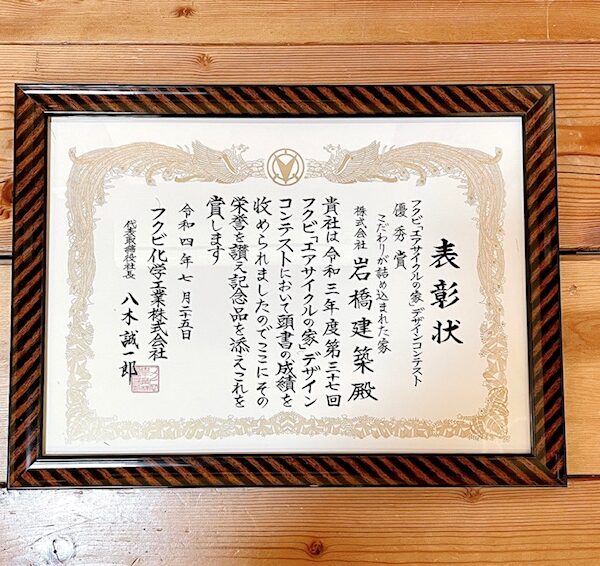 表彰状
フクビ「エアサイクルの家」デザインコンテスト
優秀賞
こだわりが詰め込まれた家
株式会社 岩橋建築殿
貴社は令和三年度第三七回
フクビ「エアサイクルの家」デザイン
コンテストにおいて頭書の成績を
収められましたのでここにその
栄誉を讃え記念品を添えこれを
賞します
令和四年七月二五日
フクビ化学工業株式会社
代表取締役社長 八木誠一郎